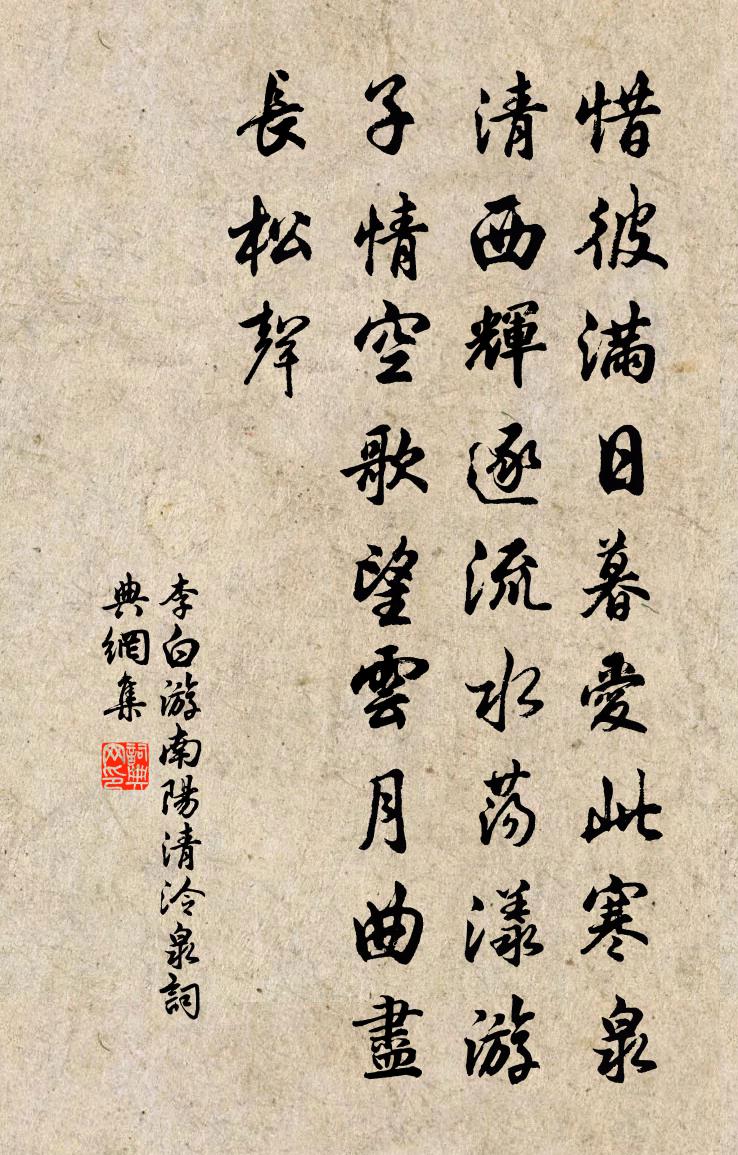 惜彼滿日暮愛此寒泉
清西輝逐流水蕩漾游
子情空歌望雲月曲盡
長松聲
李白游南陽清泠泉詞
典網集
詞典網印